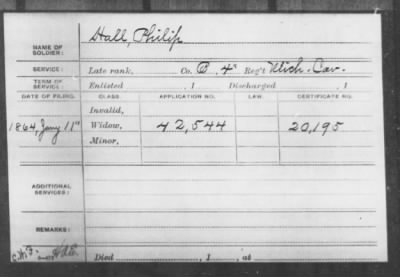 Hall, Philip
NAME OF SOLDIER:
SERVICE: Late rank, Co. B, 4" Reg't Mich. Cav.
TERM OF SERVICE: Enlisted , 1 Discharged , 1
DATE OF FILING. CLASS. APPLICATION NO. LAW. CERTIFICATE NO.
Invalid,
1864, Jany 11" Widow, 42,544 20,195
Minor,
ADDITIONAL SERVICES:
REMARKS:
Died , 1 , at